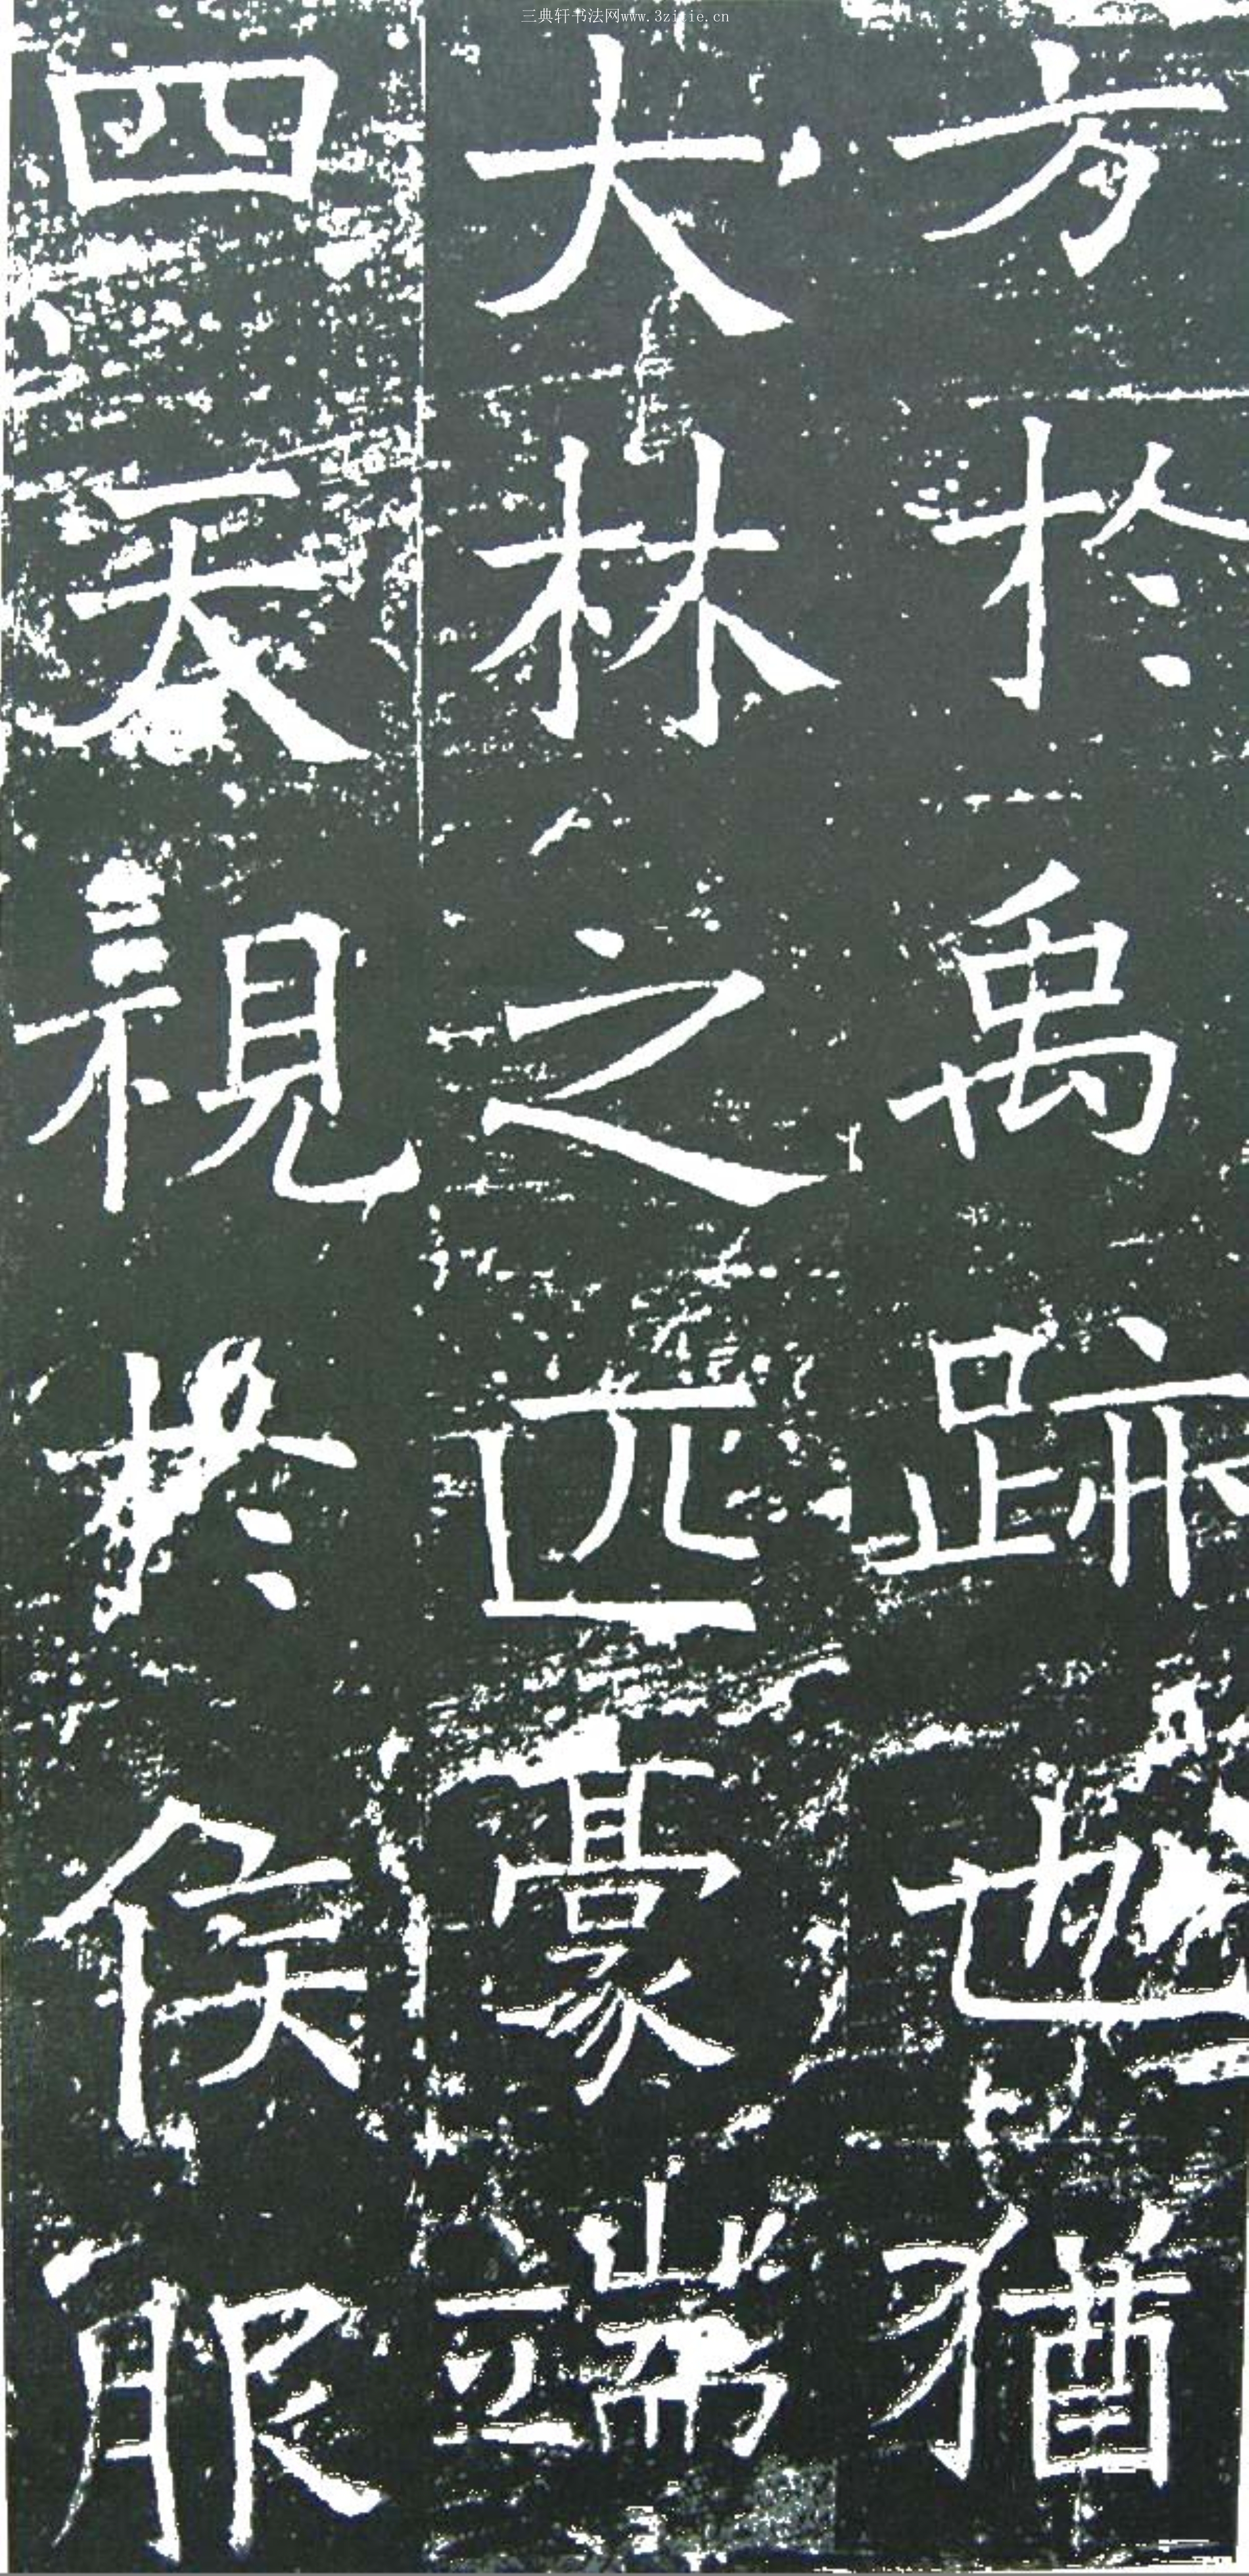 三典轩书法网www.3zitie.cn
方於禹跡也猶
大林之匹豪端
四天視於侯服